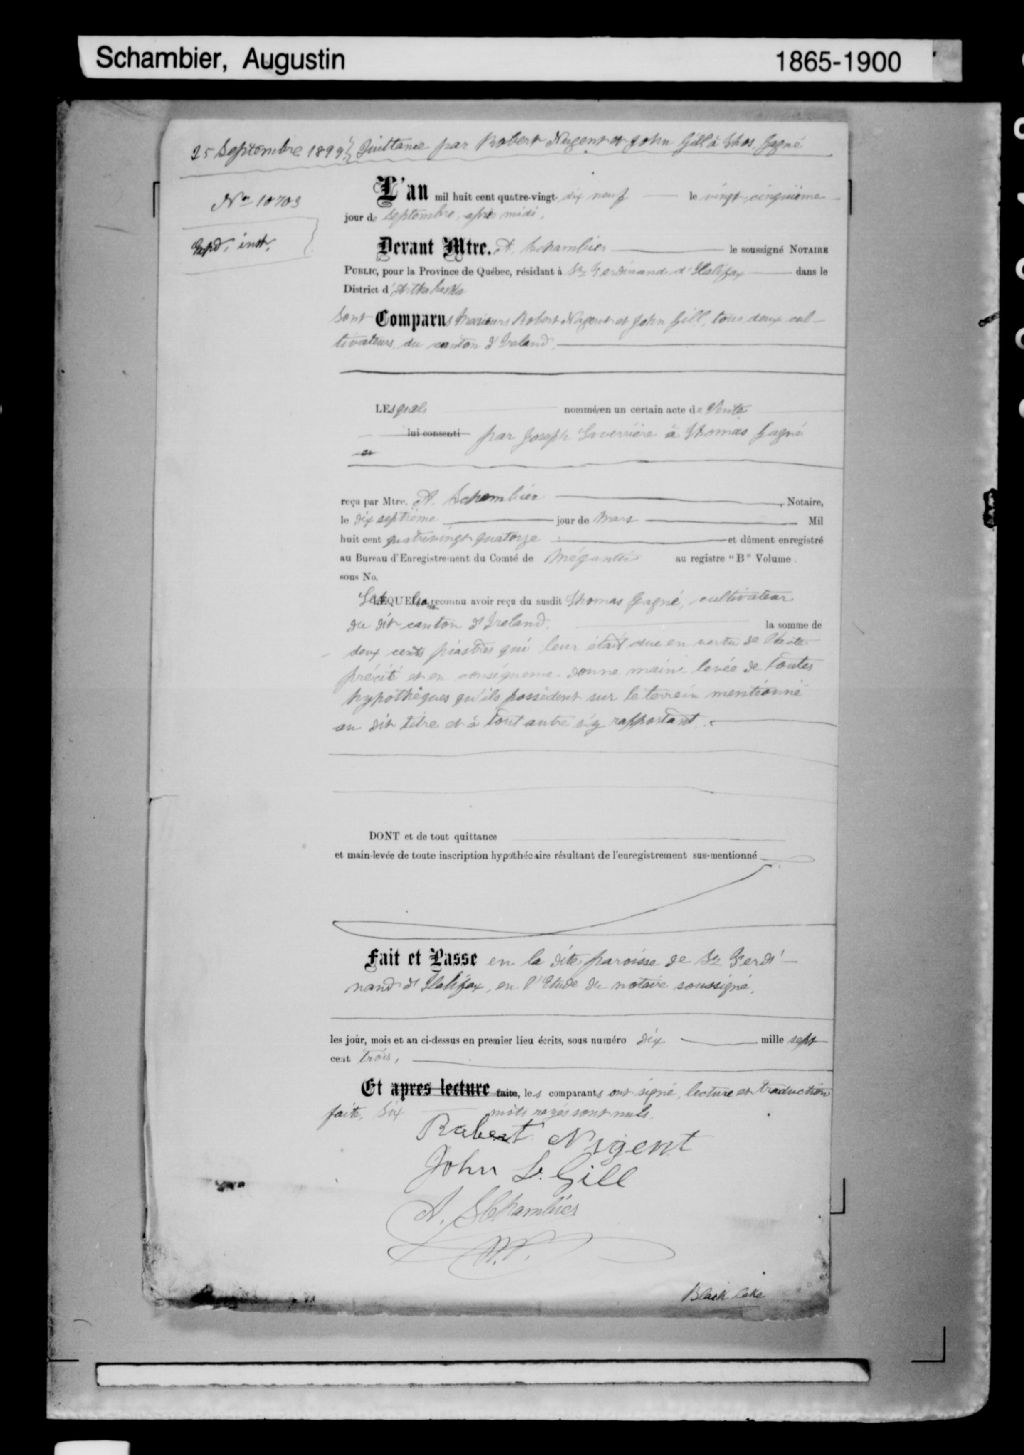 Schambier, Augustin 1865-1900
25 Septembre 1899 Quittance par Robert Nugent et John Gill à Thos Gagné
No 10703
L'an mil huit cent quatre-vingt-dix neuf le vingt cinquième
jour de septembre, après midi,
Expd. inst.
Devant Mtre. A. Schambier le soussigné NOTAIRE
PUBLIC, pour la Province de Québec, résidant à St Ferdinand d'Halifax dans le
District d'Arthabaska
Sont Comparus Messieurs Robert Nugent et John Gill, tous deux cul-
tivateurs, du canton d'Ireland,
LESquels nommé en un certain acte de Vente
lui consenti par Joseph Laverrière à Thomas Gagné
reçu par Mtre. A. Schambier, Notaire,
le dix septième jour de Mars Mil
huit cent quatrevingt quatorze et dûment enregistré
au Bureau d'Enregistrement du Comté de Mégantic au registre "B" Volume
sous No.
LEQUEL reconnu avoir reçu du susdit Thomas Gagné, cultivateur
du dit canton d'Ireland. la somme de
deux cents piastres qui leur était due en vertu de
précité et en conséquence donne main levée de toutes
hypothèques qu'ils possèdent sur le terrein mentionné
au dit titre et à tout autre s'y rapportant.
DONT et de tout quittance
et main-levée de toute inscription hypothécaire résultant de l'enregistrement sus-mentionné
Fait et Passe en la dite paroisse de St Ferdi-
nand d'Halifax, en l'Etude du notaire soussigné,
les jour, mois et an ci-dessus en premier lieu écrits, sous numéro dix mille sept
cent trois,
Et apres lecture faite, les comparants ont signé, lecture et traduction
faite, Six mots rayés sont nuls.
Robert Nugent
John S. Gill
A. Schambier
N.P.
Black Lake